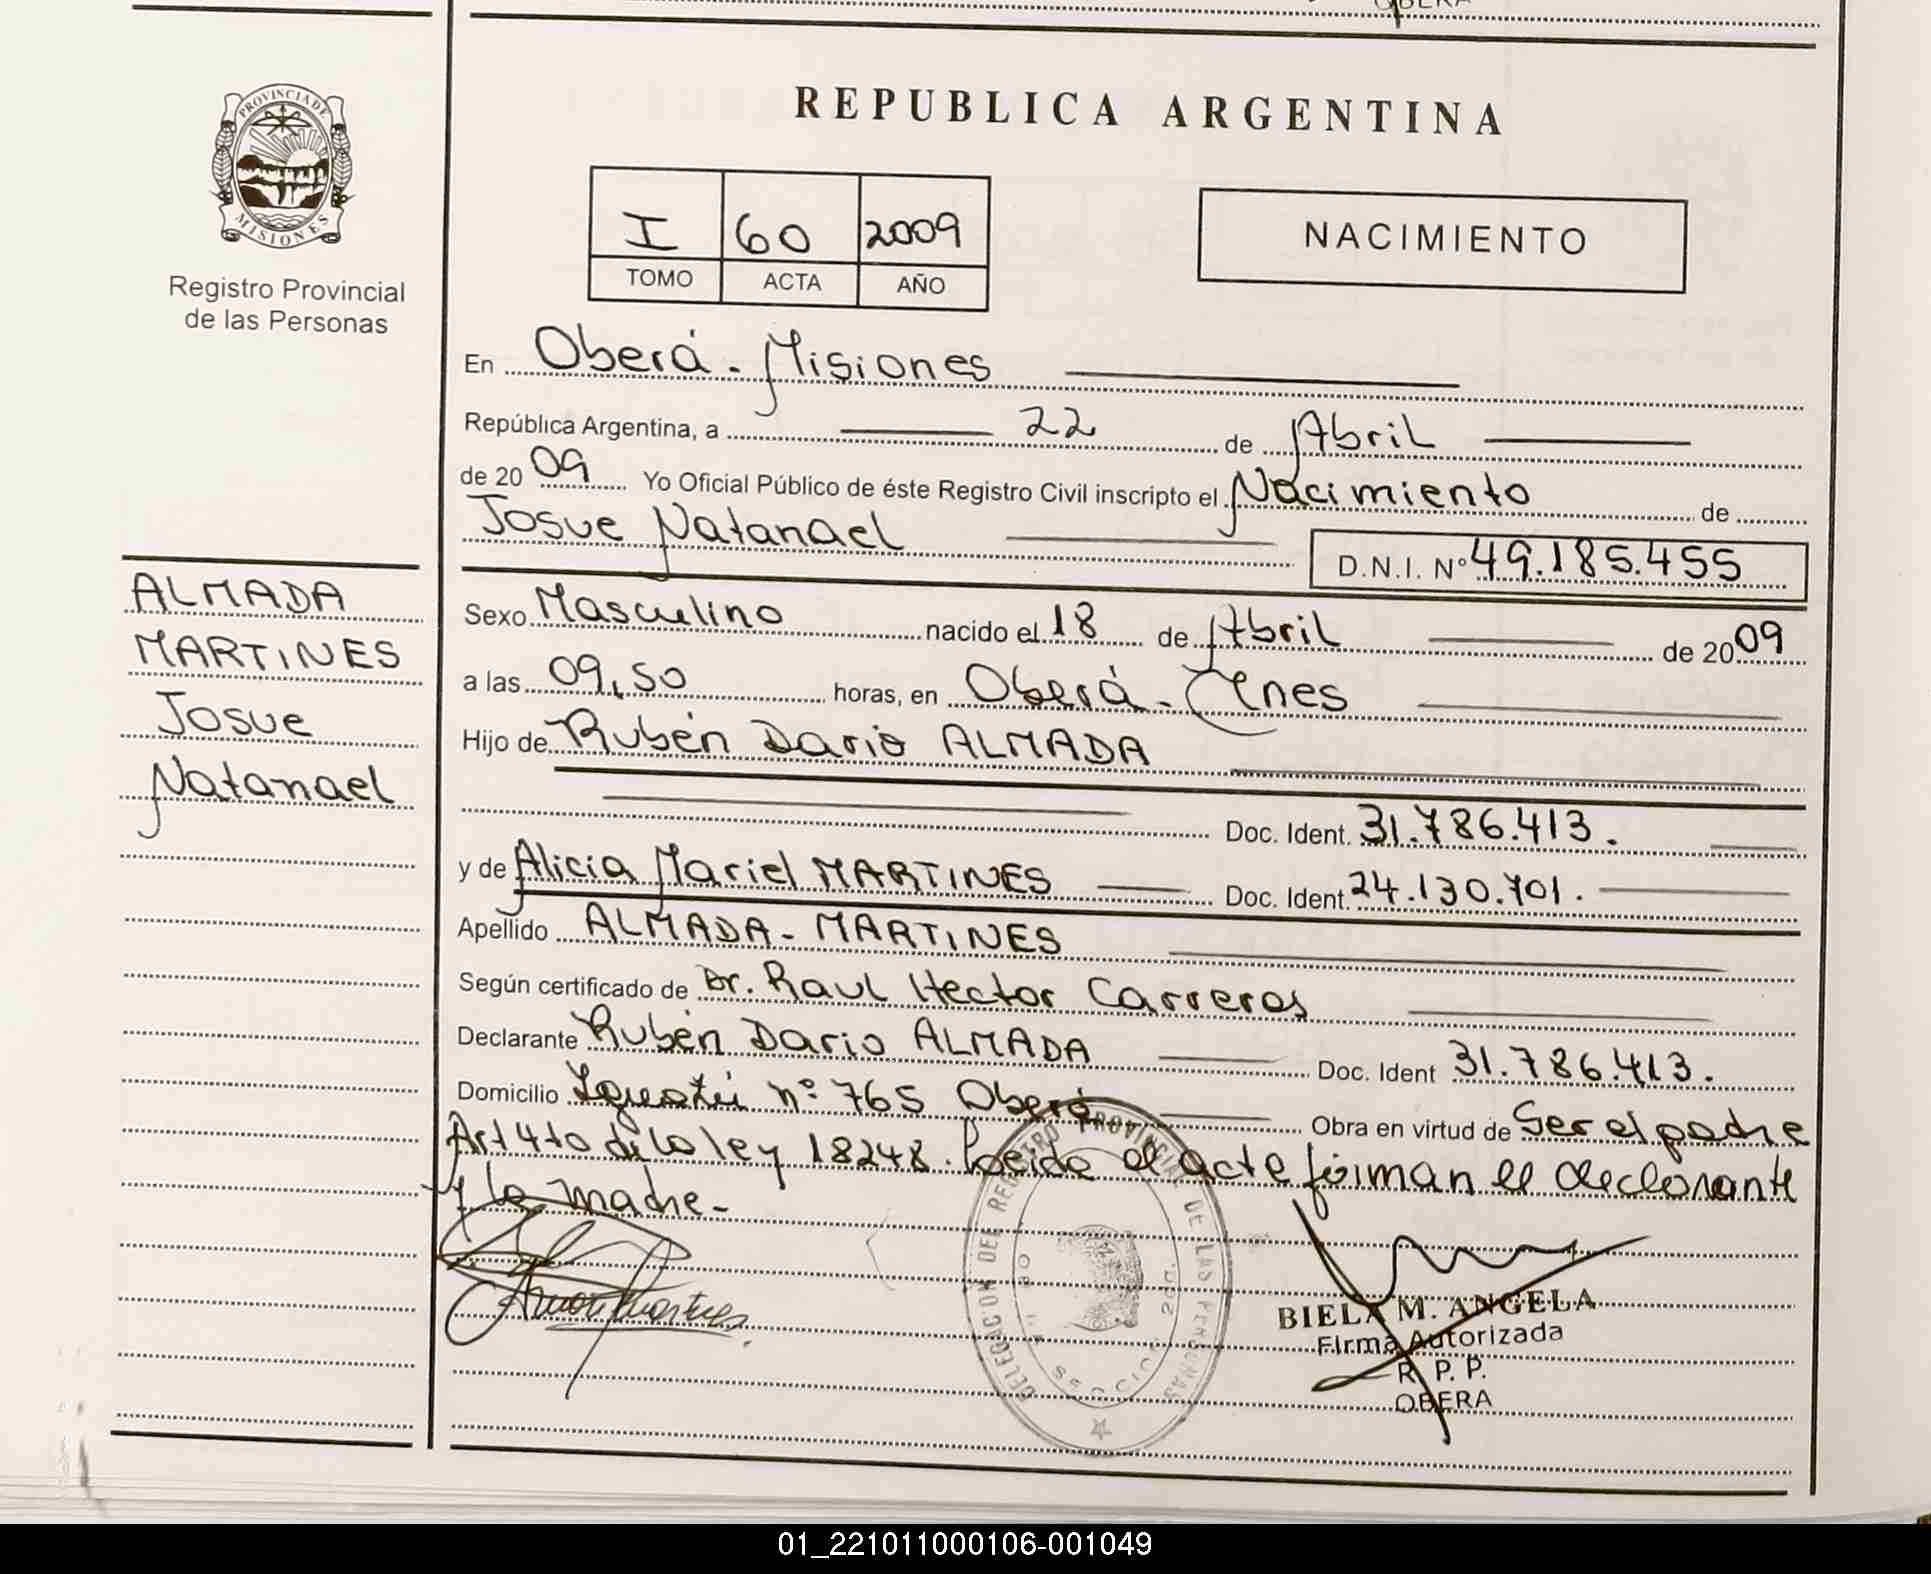 OBERA
PROVINCIA DE
MISIONES
Registro Provincial
de las Personas
REPUBLICA ARGENTINA
I 60 2009
TOMO ACTA AÑO
NACIMIENTO
En Oberá - Misiones
República Argentina, a 22 de Abril
de 2009 Yo Oficial Público de éste Registro Civil inscripto el Nacimiento de
Josue Natanael D.N.I. Nº 49.185.455
ALMADA
MARTINES
Josue
Natanael
Sexo Masculino nacido el 18 de Abril de 2009
a las 09,50 horas, en Oberá - Mnes
Hijo de Rubén Dario ALMADA
Doc. Ident. 31.786.413.
y de Alicia Mariel MARTINES Doc. Ident. 24.130.701.
Apellido ALMADA - MARTINES
Según certificado de Dr. Raul Hector Carreros
Declarante Rubén Dario ALMADA Doc. Ident 31.786.413.
Domicilio nº 765 Oberá Obra en virtud de Ser el padre
Art 4to de la ley 18248. Leida el acta firman el declarante
y la madre -
DELEGACION DEL REGISTRO PROVINCIAL DE LAS PERSONAS
BIELA M. ANGELA
Firma Autorizada
R. P. P.
OBERA
01_221011000106-001049